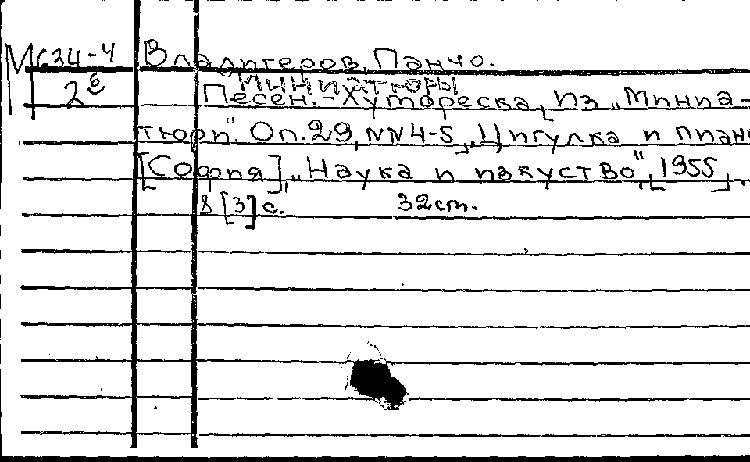 М634-4 Владигеров, Панчо.
Миниатюры
2е Песен.-Хумореска, [из „Миниа-
тюри". Оп. 29, NN4-5], Цигулка и пиан
[София], „Наука и изкуство", [1955],
8 [3] с. 32 cm.